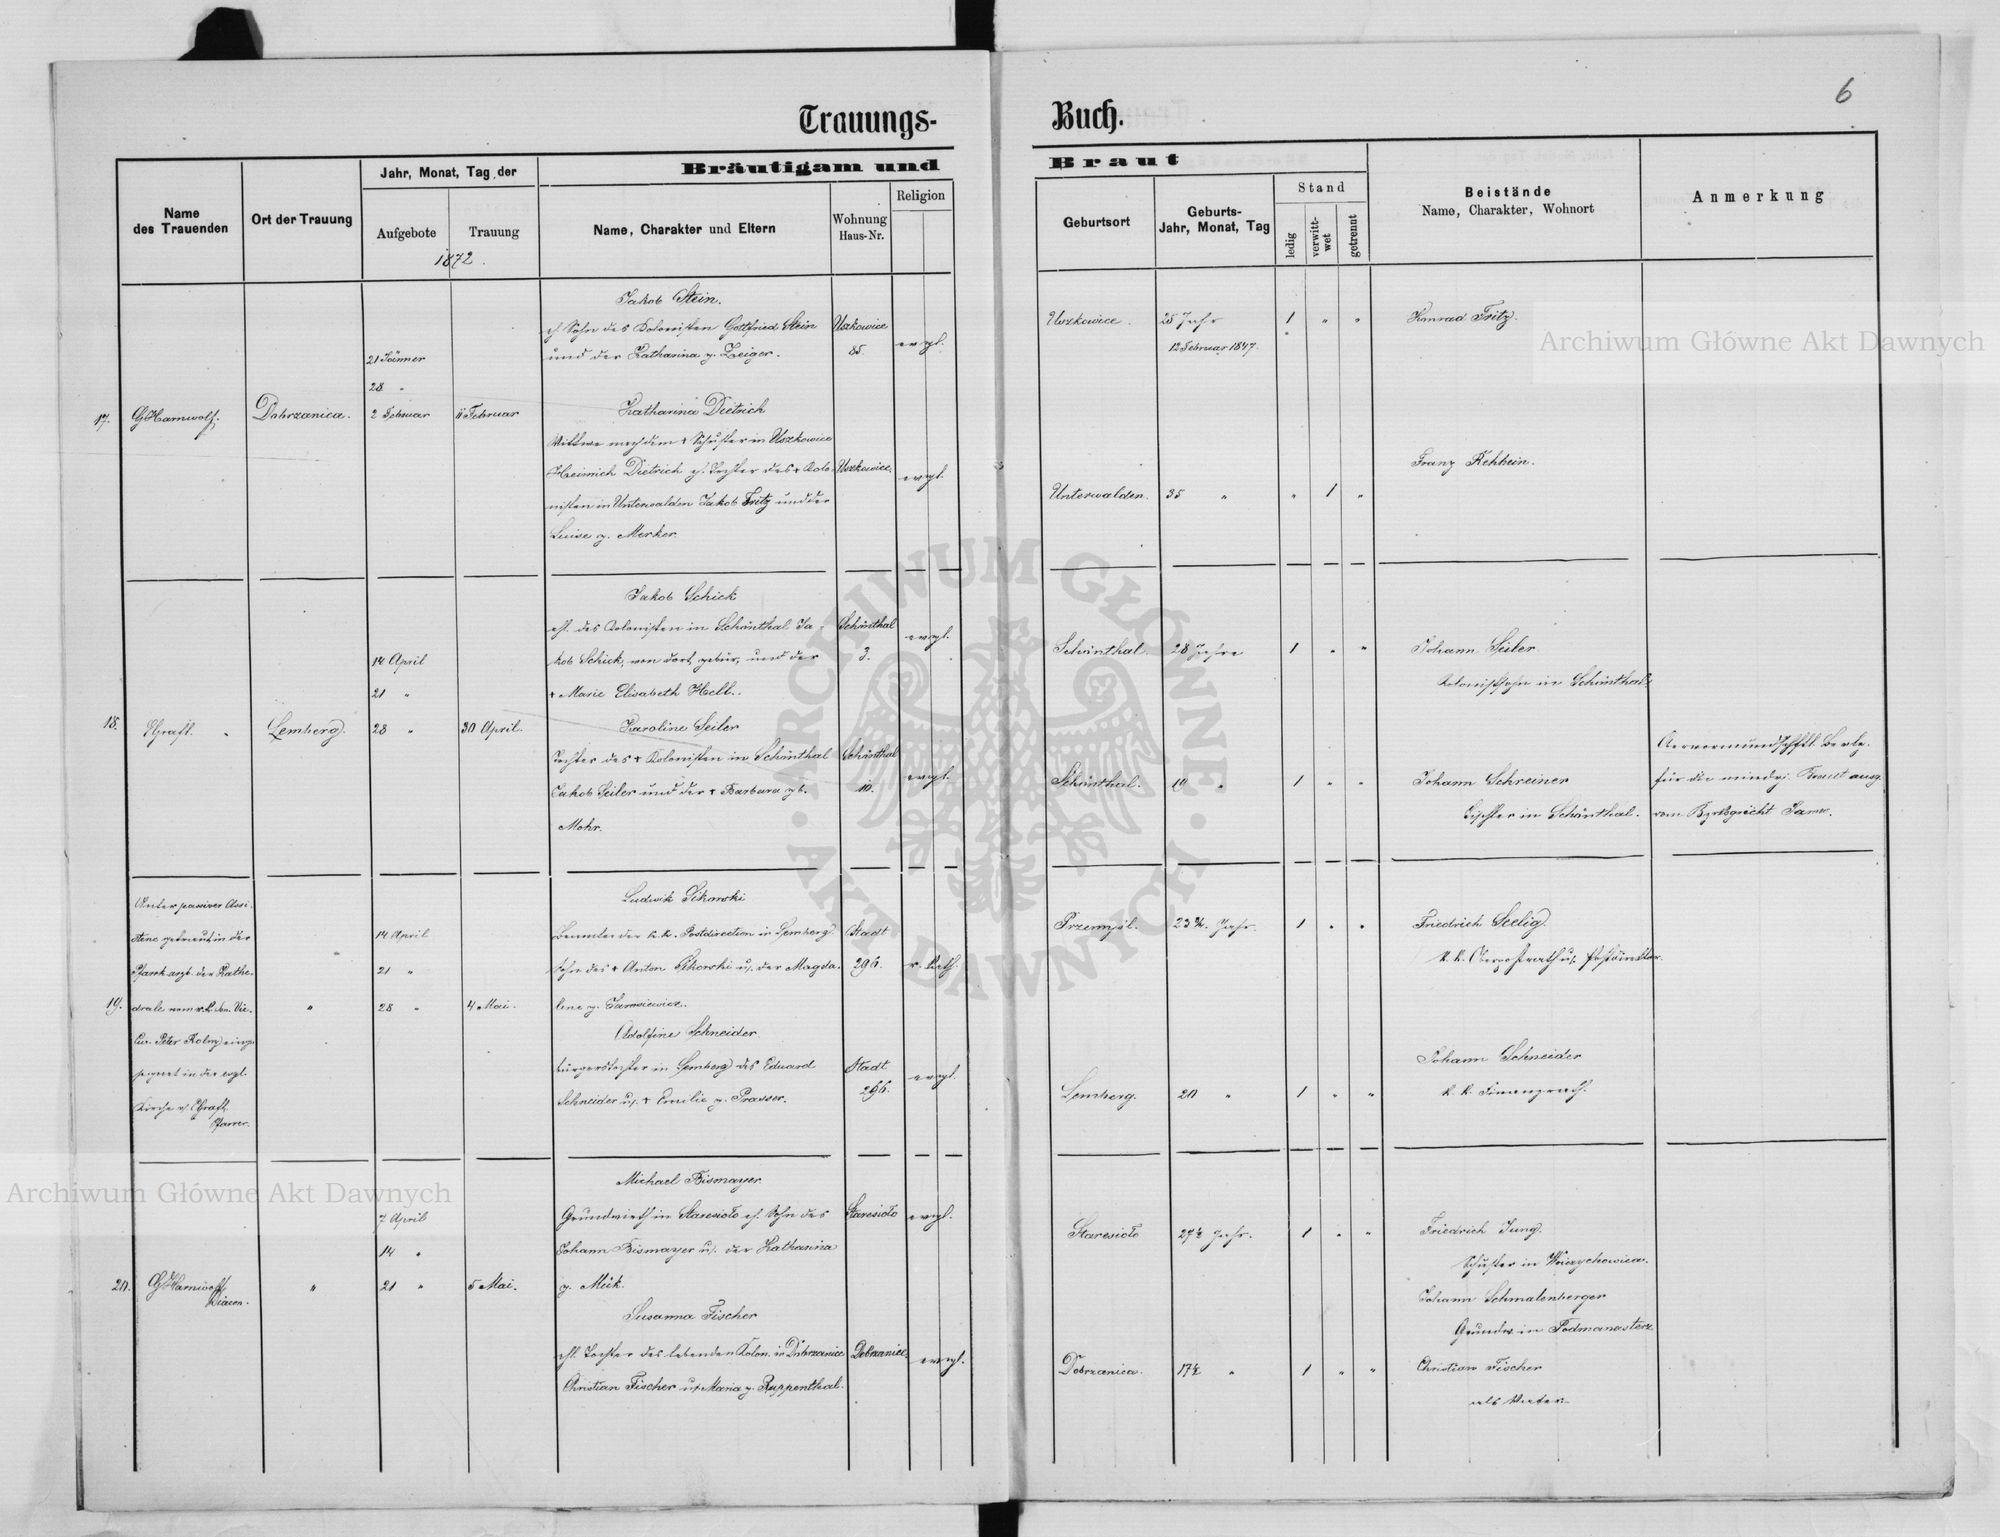 6
Trauungs-Buch.
Name des Trauenden
Ort der Trauung
Jahr, Monat, Tag der
Aufgebote
Trauung
1872.
Bräutigam und Braut
Name, Charakter und Eltern
Wohnung
Haus-Nr.
Religion
Geburtsort
Geburts-
Jahr, Monat, Tag
Stand
ledig
verwitt-
wet
getrennt
Beistände
Name, Charakter, Wohnort
Anmerkung
17.
Dobrzanica.
21 Jänner
28 "
2 Februar
11 Februar
Jakob Stein.
eh. Sohn des Kolonisten Gottfried Stein
und der Katharina g. Zeiger.
Uszkowice
85.
evgl.
Uszkowice.
25 Jahr
12 Februar 1847.
1 " "
Konrad Fritz.
Katharina Dietrich
Wittwe nach dem + Schuster in Uszkowice
Heinrich Dietrich eh. Tochter des + Kolo-
nisten in Unterwalden Jakob Fritz und der
Luise g. Merker.
Uszkowice.
evgl.
Unterwalden.
35 "
" 1 "
Franz Rehbein.
18.
Lemberg.
14 April
21 "
28 "
30 April.
Jakob Schick
ehl. des Kolonisten in Schönthal Ja-
kob Schick, von dort gebür, und der
+ Marie Elisabeth Hell.
Schönthal
3.
evgl.
Schönthal.
28 Jahre
1 " "
Johann Seiler
Kolonistsohn in Schönthal.
Karoline Seiler
Tochter des + Kolonisten in Schönthal
Jakob Seiler und der + Barbara gb.
Mohr.
Schönthal
10.
evgl.
Schönthal.
19 "
1 " "
Johann Schreiner
Tischler in Schönthal.
für die mindrj. Braut ausg.
vom Bzrksgericht Janow.
19.
Unter passiver Assi-
stenz getraut in der
der Kathe-
drale vom
Peter Kolny
segnet in der evgl.
Kirche
Pfarrer.
"
14 April
21 "
28 "
4 Mai.
Ludwik Sikorski
Beamter der k.k. Postdirection in Lemberg
Sohn des + Anton Sikorski u. der Magda-
lena g.
Stadt
296.
r. kath.
Przemyśl.
Jahr.
1 " "
Friedrich Seelig.
Adolfine Schneider.
bürgerstochter in Lemberg des Eduard
Schneider u. + Emilie g. Prasser.
Stadt
266.
evgl.
Lemberg.
20 "
1 " "
Johann Schneider
k. k. Finanzrath.
20.
"
7 April
14 "
21 "
5 Mai.
Michael Bismayer.
Grundwirth in Staresioło eh. Sohn des
Johann Bismayer u. der Katharina
g. Mük.
Staresioło
evgl.
Staresioło
27½ Jahr.
1 " "
Friedrich Jung.
Schuster in
Johann Schmalenberger
Grundw. in Podmanasterz
Susanna Fischer
ehl. Tochter des lebenden Kolon. in Dobrzanica
Christian Fischer u. Maria g. Ruppenthal.
Dobrzanica.
evgl.
Dobrzanica.
17½ "
1 " "
Christian Fischer
als Vater.
Archiwum Główne Akt Dawnych
Archiwum Główne Akt Dawnych
ARCHIWUM GŁÓWNE · AKT DAWNYCH ·